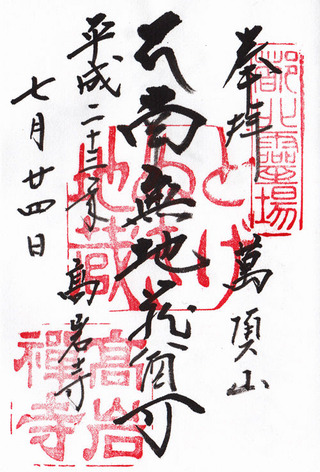 都北靈場
奉拝 萬頂山
南無地蔵
とげ
地蔵
平成二十三年 高岩寺
七月廿四日
高岩
禪寺